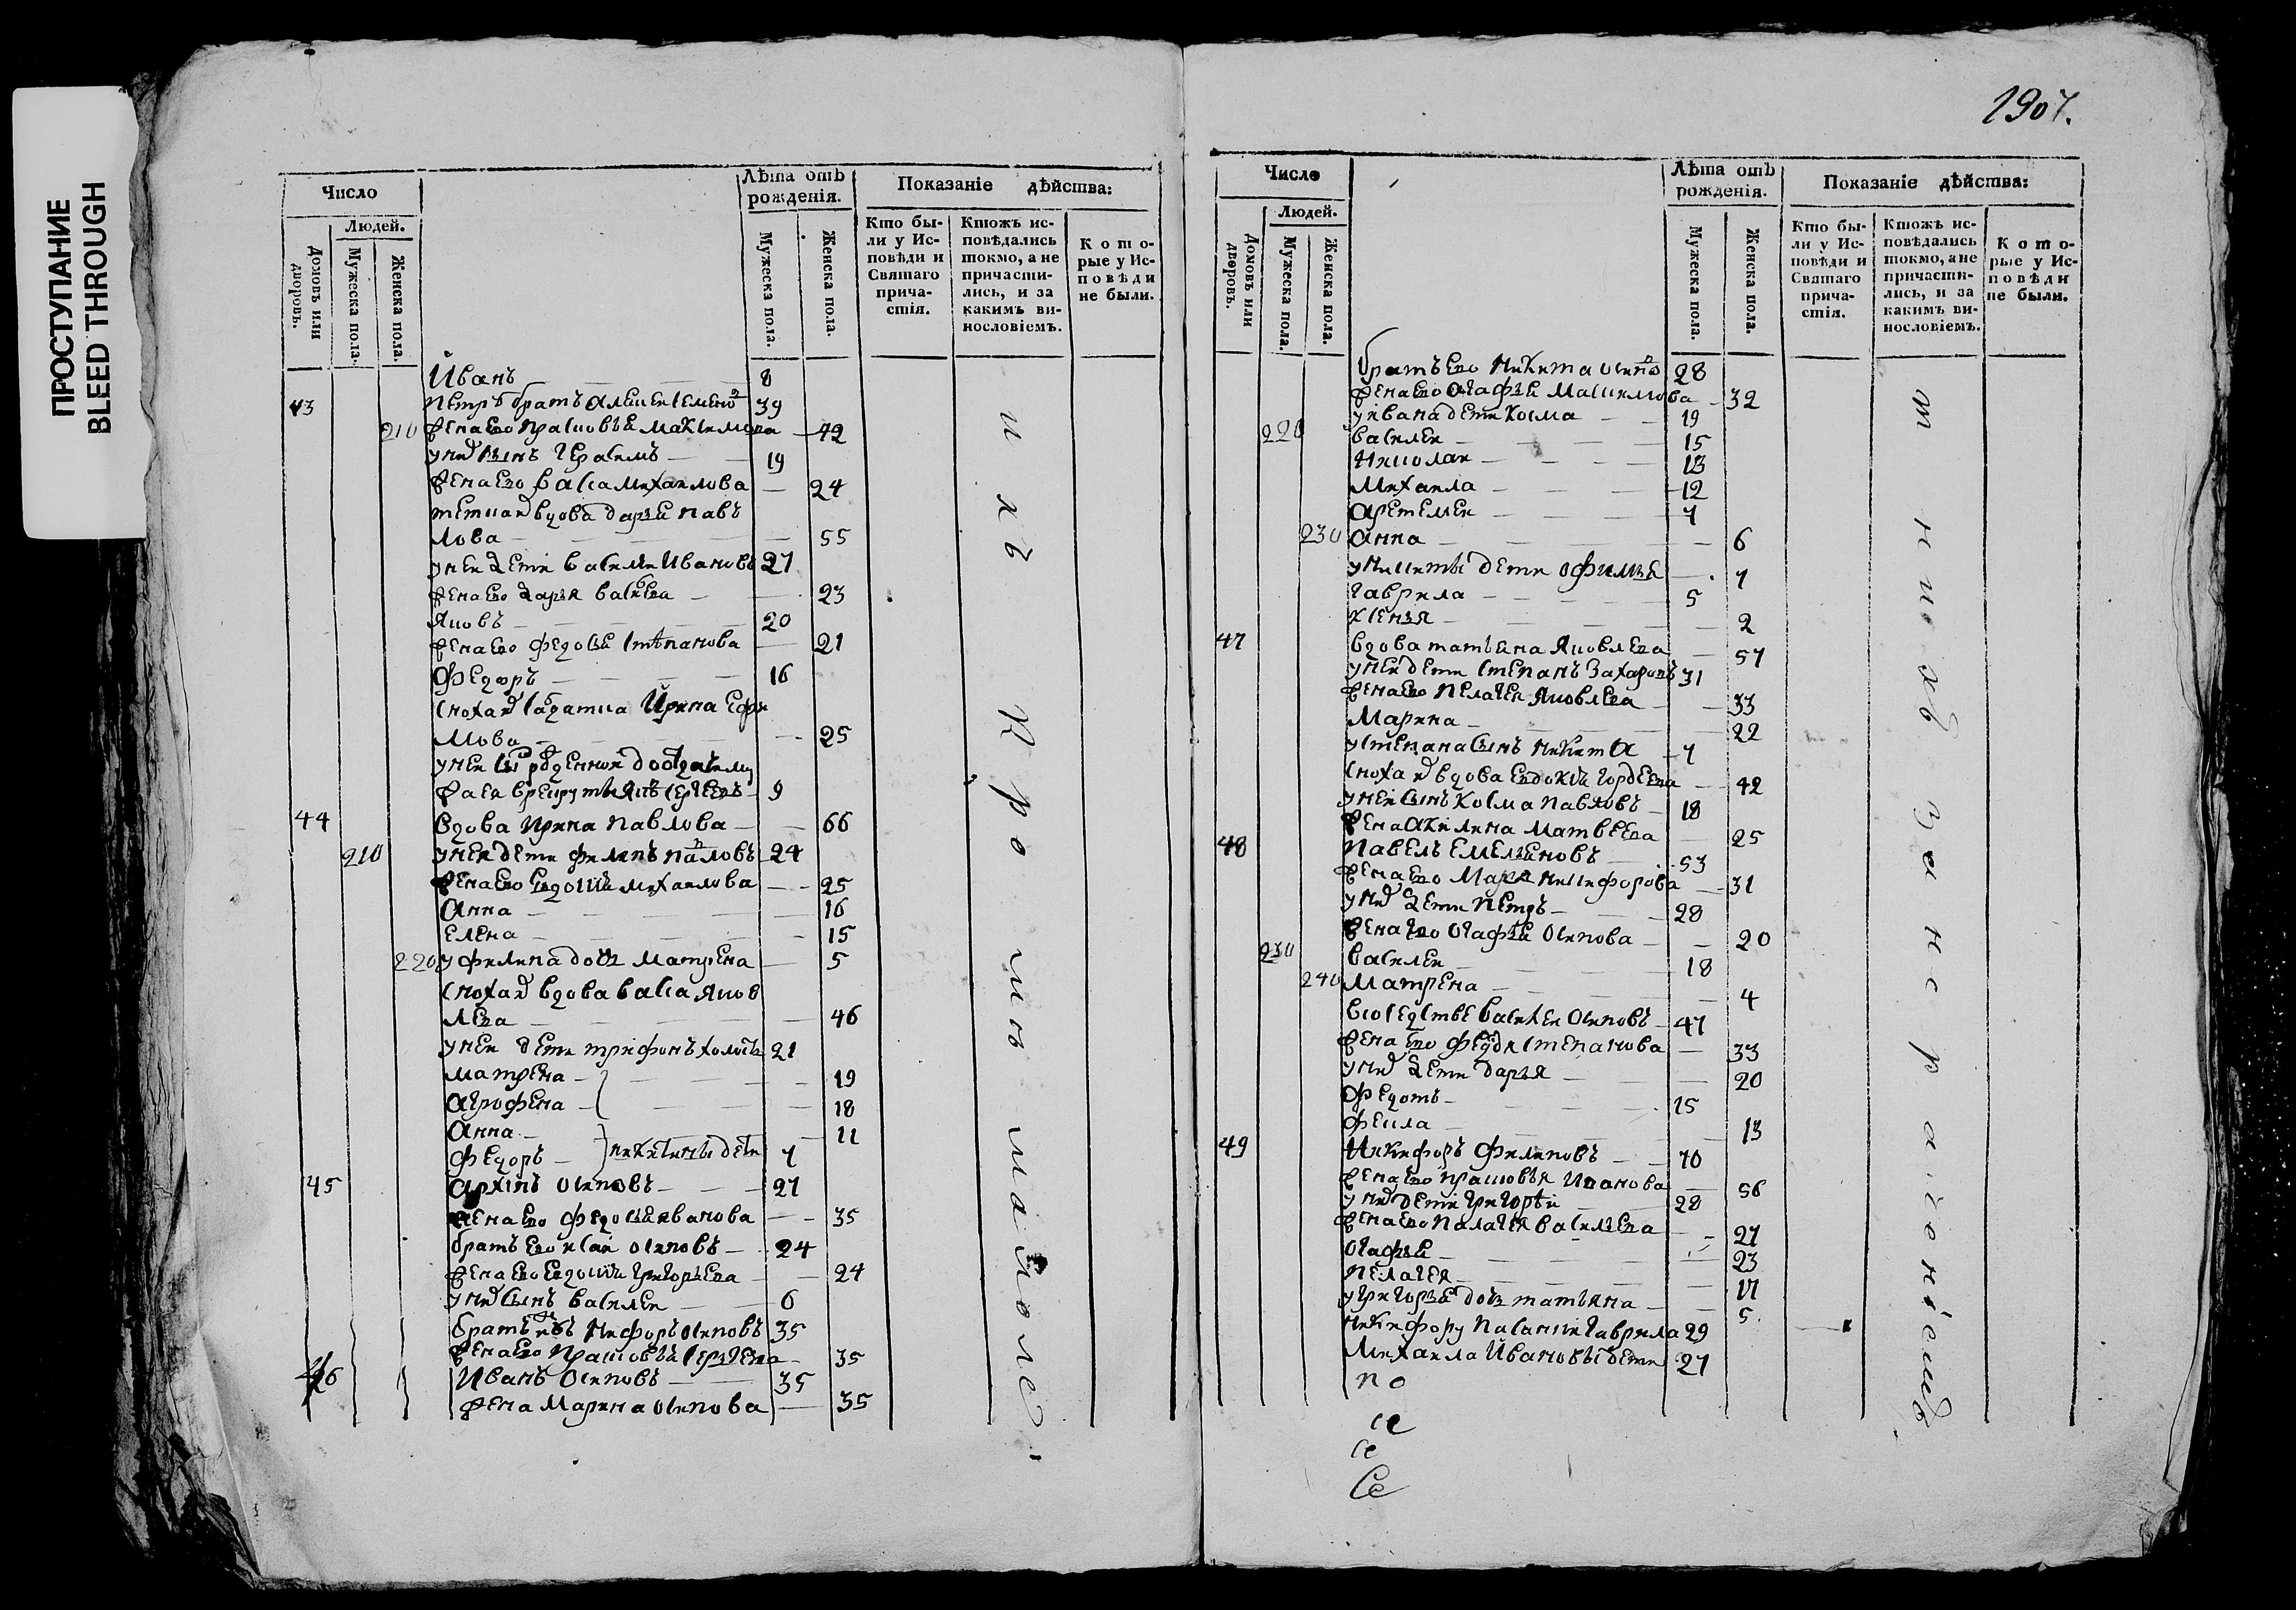 ПРОСТУПАНИЕ
BLEED THROUGH
Число
Людей.
Домовъ или дворовъ.
Мужеска пола.
Женска пола.
Лѣта отъ рожденія.
Мужеска пола.
Женска пола.
Показаніе дѣйства:
Кто бы-
ли у Ис-
повѣди и
Святаго
прича-
стія.
Ктожъ ис-
повѣдались
токмо, а не
причасти-
лись, и за
какимъ ви-
нословіемъ.
К о т о-
рые у Ис-
п о в ѣ д и
не были.
Иванъ 8
43 Петръ братъ Алексея Семено 39
210 жена ево прасковья Максимова 42
у них сынъ Герасимъ 19
жена ево васа михаилова 24
тетка их вдова дарья пав
лова 55
у нея дети василий Ивановъ 27
жена ево дарья васильева 23
Яковъ 20
жена ево федосья стѣпанова 21
Федоръ 16
сноха их салдатка Ирина Ефи
мова 25
9
44 вдова ирина павлова 66
210 у нея дети филипъ павловъ 24
жена ево евдокия михаилова 25
Анна 16
Елена 15
220 у филипа дочь матрена 5
сноха их вдова васа яков
лева 46
у нея дети трифонъ холостъ 21
матрена 19
агрофена 18
Анна 11
Федоръ никитины дети 7
45 архипъ осиповъ 27
жена ево федосья иванова 35
братъ ево исай осиповъ 24
жена ево евдокия григорьева 24
у них сынъ василеи 6
братъ ихъ никифоръ осиповъ 35
жена ево прасковья сергеева 35
46 Иванъ осиповъ 35
жена марина осипова 35
ихъ Кромъ малолѣ
1907.
Число
Людей.
Домовъ или дворовъ.
Мужеска пола.
Женска пола.
Лѣта отъ рожденія.
Мужеска пола.
Женска пола.
Показаніе дѣйства:
Кто бы-
ли у Ис-
повѣди и
Святаго
прича-
стія.
Ктожъ ис-
повѣдались
токмо, а не
причасти-
лись, и за
какимъ ви-
нословіемъ.
К о т о-
рые у Ис-
п о в ѣ д и
не были.
братъ ево никита осипо 28
жена ево огафья Максимова 32
у ивана дети косма 19
220 василеи 15
николаи 13
михаила 12
артемеи 7
230 Анна 6
у никиты дети офимья 7
гаврила 5
ксенья 2
47 вдова татьяна яковлева 57
у нея дети степанъ Захаровъ 31
жена ево пелагея яковлева 33
марина 22
у степана сынъ никита 7
сноха их вдова евдокия гордеева 42
у нея сынъ косма павловъ 18
жена акилина матвеева 25
48 павелъ емельяновъ 53
жена ево марья никифорова 31
у них дети петръ 28
жена ево огафья осипова 20
230 василеи 18
240 матрена 4
в соседстве василеи осиповъ 47
жена ево степанова 33
у них дети дарья 20
Федотъ 15
Фекла 13
49 Никифоръ филиповъ 70
жена ево прасковья иванова 56
у них дети григорѣи 28
жена ево палагея васильева 27
огафья 23
пелагея 17
у григорья дочь татьяна 5
никифору пасынки гаврила 29
михаила ивановы дети 27
по
се
се
Се